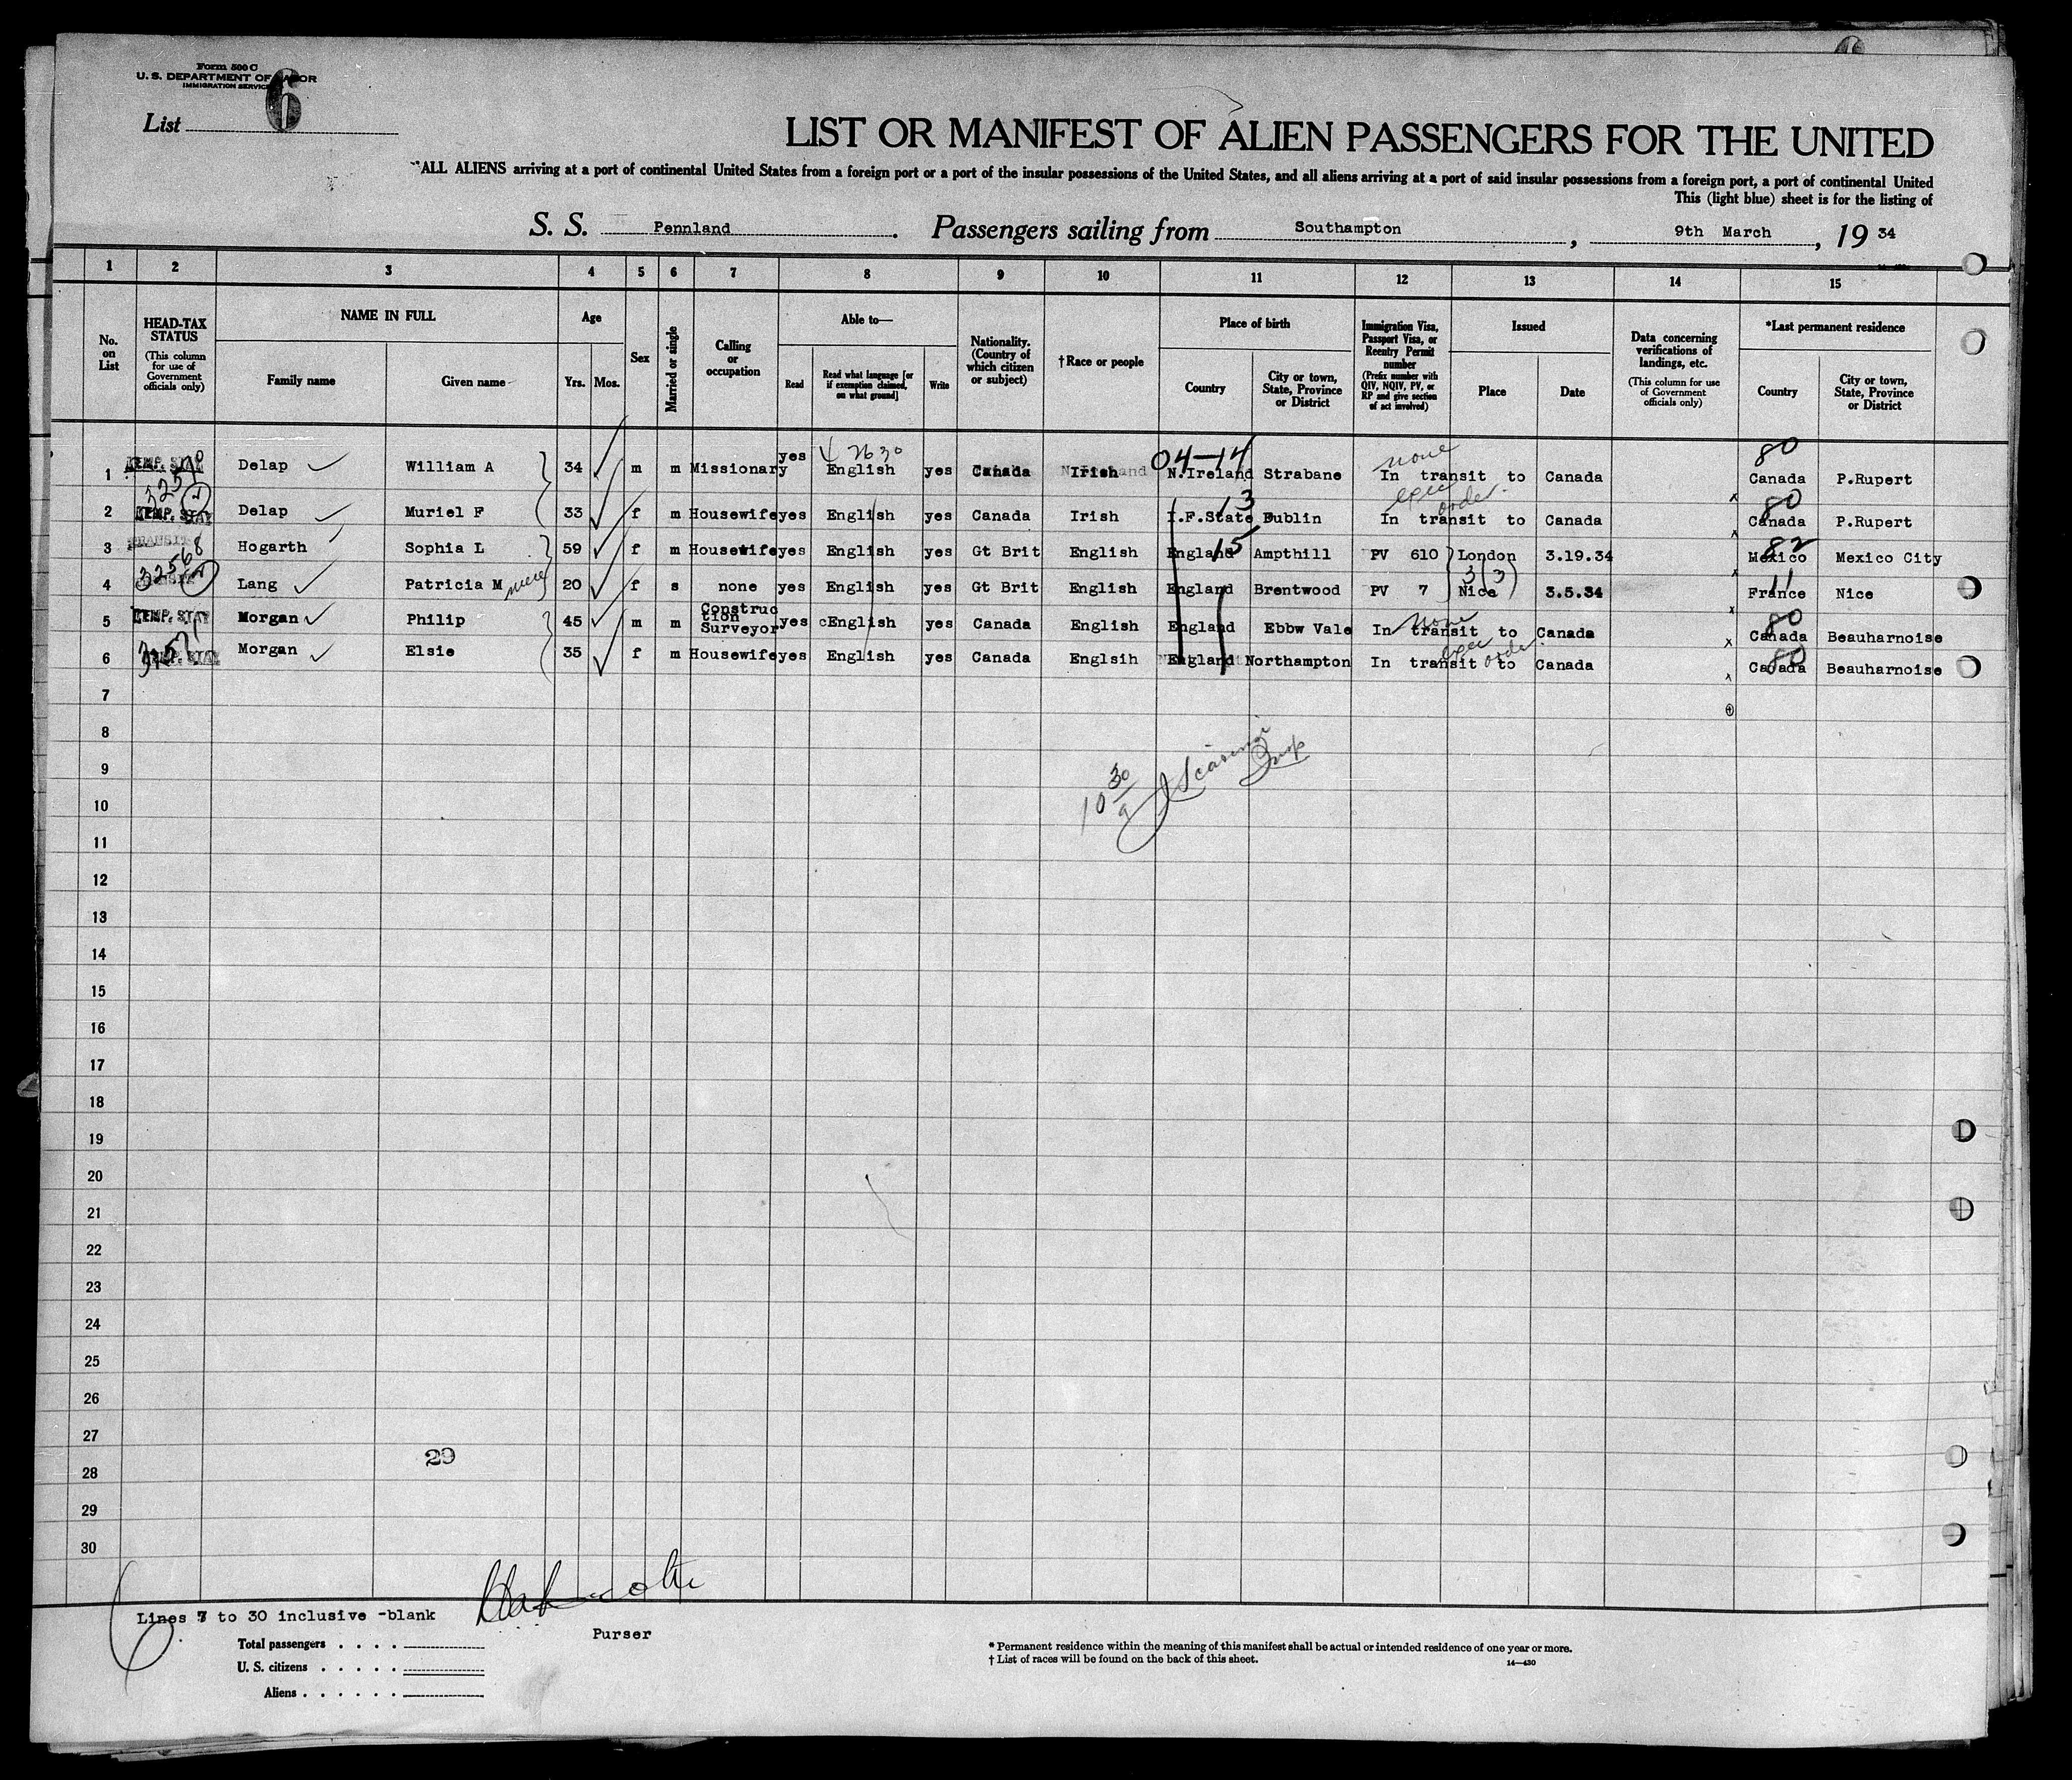 Form 500 C
U. S. DEPARTMENT OF LABOR
IMMIGRATION SERVICE
List 6
LIST OR MANIFEST OF ALIEN PASSENGERS FOR THE UNITED
ALL ALIENS arriving at a port of continental United States from a foreign port or a port of the insular possessions of the United States, and all aliens arriving at a port of said insular possessions from a foreign port, a port of continental United
This (light blue) sheet is for the listing of
S. S. Pennland . Passengers sailing from Southampton , 9th March , 19 34
1 2 3 4 5 6 7 8 9 10 11 12 13 14 15
No. on List
HEAD-TAX STATUS (This column for use of Government officials only)
NAME IN FULL
Family name Given name
Age
Yrs. Mos.
Sex
Married or single
Calling or occupation
Able to—
Read Read what language [or if exemption claimed, on what ground] Write
Nationality. (Country of which citizen or subject)
†Race or people
Place of birth
Country City or town, State, Province or District
Immigration Visa, Passport Visa, or Reentry Permit number (Prefix number with QIV, NQIV, PV, or RP and give section of act involved)
Issued
Place Date
Data concerning verifications of landings, etc. (This column for use of Government officials only)
*Last permanent residence
Country City or town, State, Province or District
80
04-14 none
1 TEMP. STAY 32570 Delap William A 34 m m Missionary yes English yes Canada Irish N.Ireland Strabane In transit to Canada Canada P.Rupert
13 exec order. 80
2 TEMP. STAY Delap Muriel F 33 f m Housewife yes English yes Canada Irish I.F.State Dublin In transit to Canada Canada P.Rupert
3 TRANSIT Hogarth Sophia L 59 f m Housewife yes English yes Gt Brit English England 15 Ampthill PV 610 London 3.19.34 Mexico 82 Mexico City
4 32568 Lang Patricia M 20 f s none yes English yes Gt Brit English England Brentwood PV 7 Nice 3.5.34 France 11 Nice
5 TEMP. STAY Morgan Philip 45 m m Construction Surveyor yes English yes Canada English England Ebbw Vale In transit to Canada Canada 80 Beauharnoise
none
6 32571 TEMP. STAY Morgan Elsie 35 f m Housewife yes English yes Canada Englsih England Northampton In transit to Canada Canada 80 Beauharnoise
exec order
7
8
9
10
11
12
13
14
15
16
17
18
19
20
21
22
23
24
25
26
27
29
28
29
30
Lines 7 to 30 inclusive -blank
Purser
Total passengers . . . .
U. S. citizens . . . . .
Aliens . . . . . .
* Permanent residence within the meaning of this manifest shall be actual or intended residence of one year or more.
† List of races will be found on the back of this sheet.
14—430